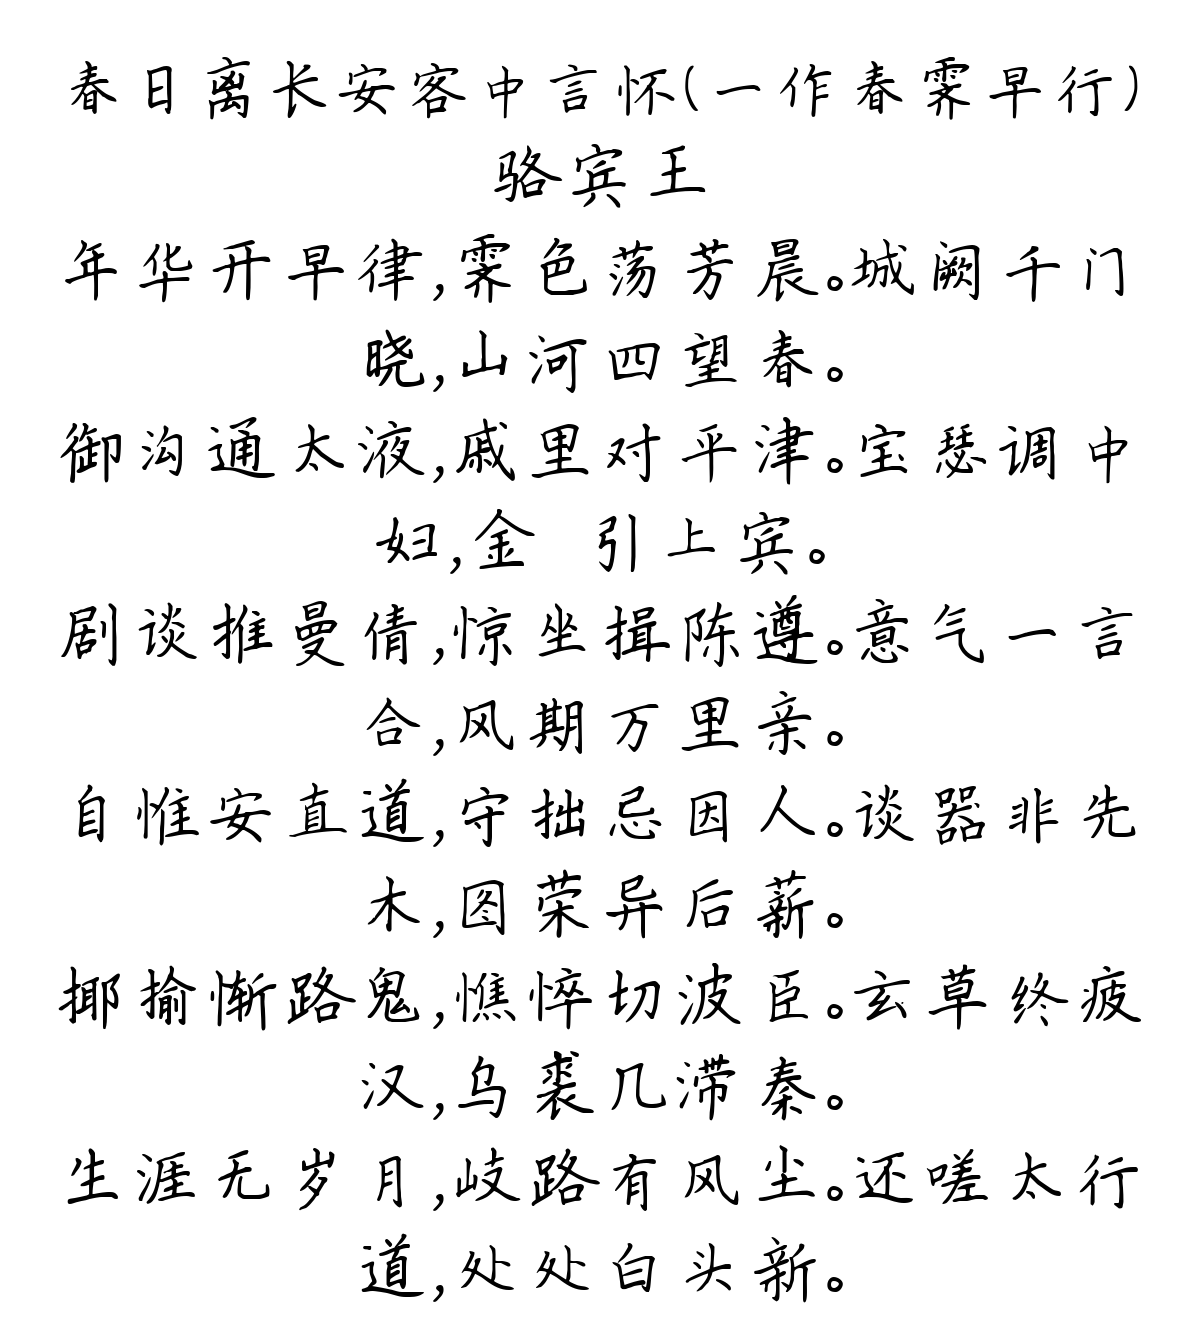 春日离长安客中言怀(一作春霁早行)
骆宾王
年华开早律,霁色荡芳晨。城阙千门
晓,山河四望春。
御沟通太液,戚里对平津。宝瑟调中
妇,金 引上宾。
剧谈推曼倩,惊坐揖陈遵。意气一言
合,风期万里亲。
自惟安直道,守拙忌因人。谈器非先
木,图荣异后薪。
揶揄惭路鬼,憔悴切波臣。玄草终疲
汉,乌裘几滞秦。
生涯无岁月,歧路有风尘。还嗟太行
道,处处白头新。